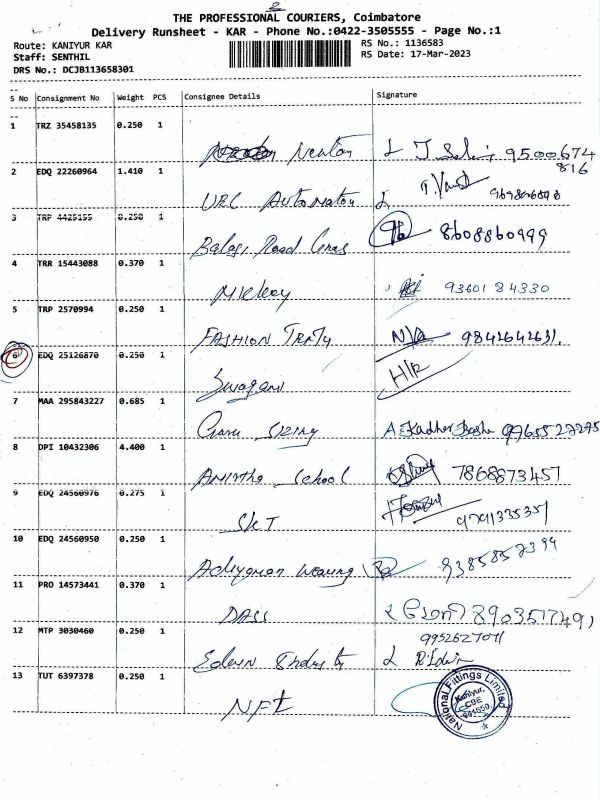 2
THE PROFESSIONAL COURIERS, Coimbatore
Delivery Runsheet - KAR - Phone No.:0422-3505555 - Page No.:1
Route: KANIYUR KAR
RS No.: 1136583
Staff: SENTHIL
RS Date: 17-Mar-2023
DRS No.: DCJB113658301
S No Consignment No Weight PCS Consignee Details Signature
1 TRZ 35458135 0.250 1
Newton 9500674
816
2 EDQ 22260964 1.410 1
URC Automation
3 TRP 4425155 0.250 1
Balaji Road 8608860999
4 TRR 15443088 0.370 1
Mickey 9360184330
5 TRP 2570994 0.250 1
FASHION N/A 9842642631.
6 EDQ 25126870 0.250 1
H/R
7 MAA 295843227 0.685 1
Sizing A. Kadher Basha
8 DPI 10432306 4.400 1
Amirtha School 7868873457
9 EDQ 24560976 0.275 1
SKT 9791335351
10 EDQ 24560950 0.250 1
9385857399
11 PRO 14573441 0.370 1
DASS
9952627071
12 MTP 3030460 0.250 1
Edwin
13 TUT 6397378 0.250 1
NFL
National Fittings Limited
Kaniyur,
CBE